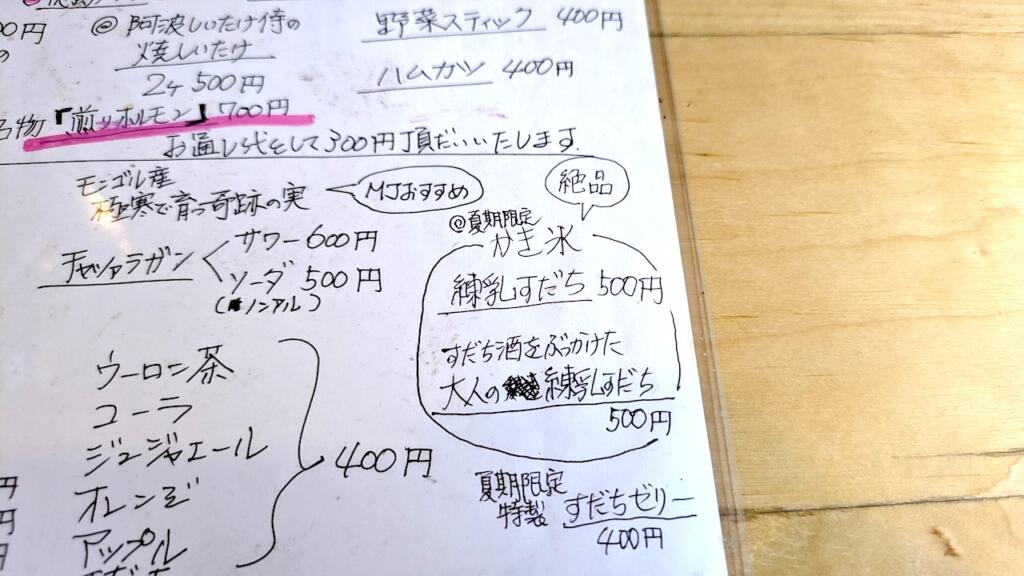 00円
@ 阿波しいたけ侍の
焼しいたけ
2ヶ 500円
野菜スティック 400円
ハムカツ 400円
名物「煎りホルモン」700円
お通し代として300円頂だいいたします.
モンゴル産
極寒で育つ奇跡の実
MJおすすめ
チャツァラガン
サワー 600円
ソーダ 500円
(ノンアル)
絶品
@夏期限定
かき氷
練乳すだち 500円
すだち酒をぶっかけた
大人の練乳すだち
500円
ウーロン茶
コーラ
ジンジャエール
オレンジ
アップル
400円
夏期限定
特製 すだちゼリー
400円